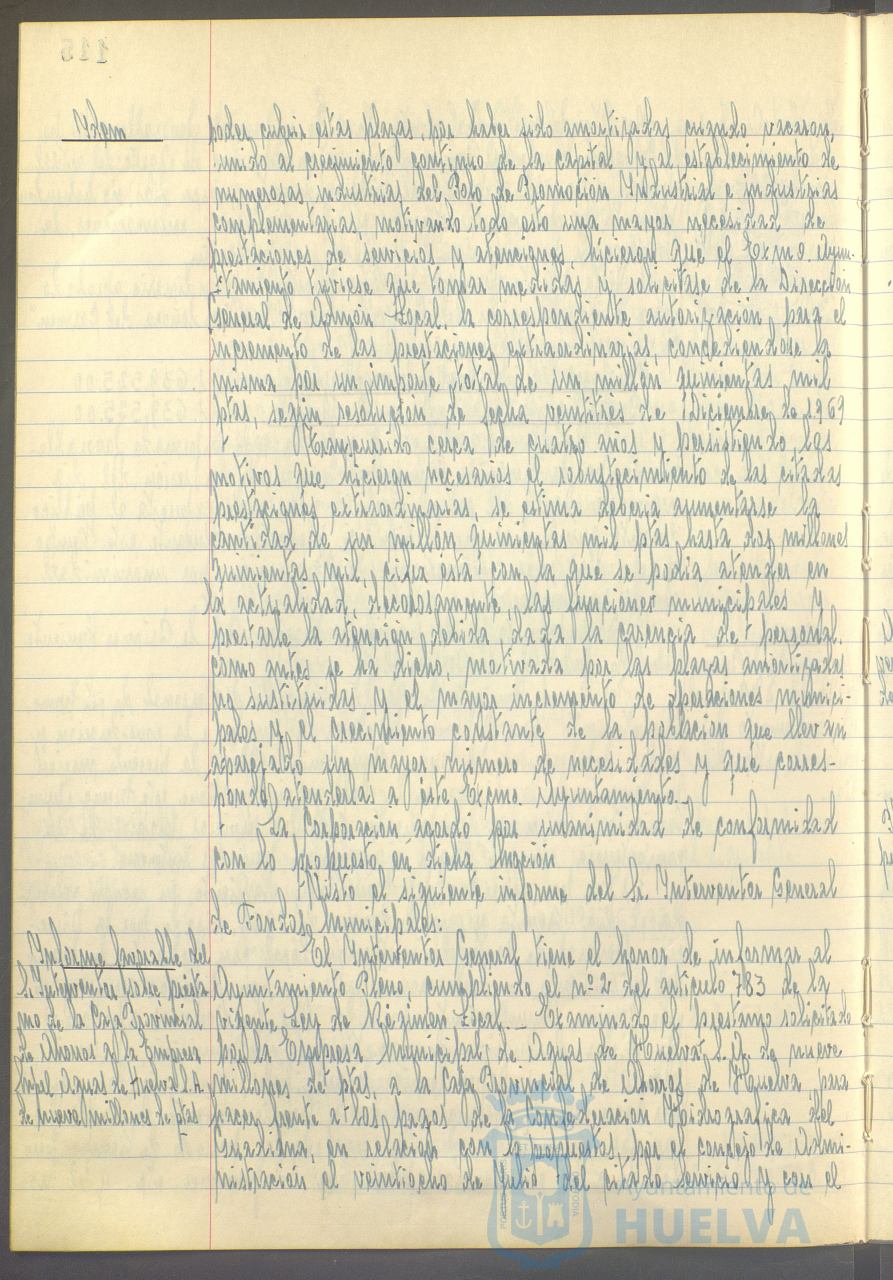 115
Idem
poder cubrir estas plazas, por haber sido amortizadas cuando vacaron,
unido al crecimiento continuo de la capital y al establecimiento de
numerosas industrias del Polo de Promoción Industrial e industrias
complementarias, motivando todo esto una mayor necesidad de
prestaciones de servicios y atenciones, hicieron que el Exmo. Ayun-
tamiento tuviese que tomar medidas y solicitase de la Dirección
General de Admón Local, la correspondiente autorización para el
incremento de las prestaciones extraordinarias, concediendose la
misma por un importe total de un millón quinientas mil
ptas, según resolución de fecha veintitres de Diciembre de 1969
Transcurrido cerca de cuatro años y persistiendo los
motivos que hicieron necesarios el robustecimiento de las citadas
prestaciones extraordinarias, se estima debería aumentarse la
cantidad de un millón quinientas mil ptas hasta dos millones
quinientas mil, cifra esta con la que se podia atender en
la actualidad, decorosamente, las funciones municipales y
prestarle la atención debida, dada la carencia de personal.
como antes se ha dicho, motivada por las plazas amortizadas
no sustituidas y el mayor incremento de operaciones munici-
pales y el crecimiento constante de la población que llevan
aparejado un mayor número de necesidades y que corres-
ponde atenderlas a éste Excmo. Ayuntamiento.-
La Corporación acordó por unanimidad de conformidad
con lo propuesto en dicha Moción
Visto el siguiente informe del Sr. Interventor General
de Fondos Municipales:
Informe favorable del
Sr. Interventor sobre présta
mo de la Caja Provincial
de Ahorros a la Empresa
Mpal Aguas de Huelva S.A.
de nueve millones de ptas
El Interventor General tiene el honor de informar al
Ayuntamiento Pleno, cumpliendo el nº 2 del articulo 783 de la
vigente Ley de Régimen Local.- Examinado el prestamo solicitado
por la Empresa Municipal de Aguas de Huelva S.A. de nueve
millones de ptas. a la Caja Provincial de Ahorros de Huelva para
hacer frente a los pagos de la Confederación Hidrografica del
Guadiana, en relación con la propuestas por el concejo de Admi-
nistración el veintiocho de Julio del citado Servicio y con el
Ayuntamiento de
HUELVA